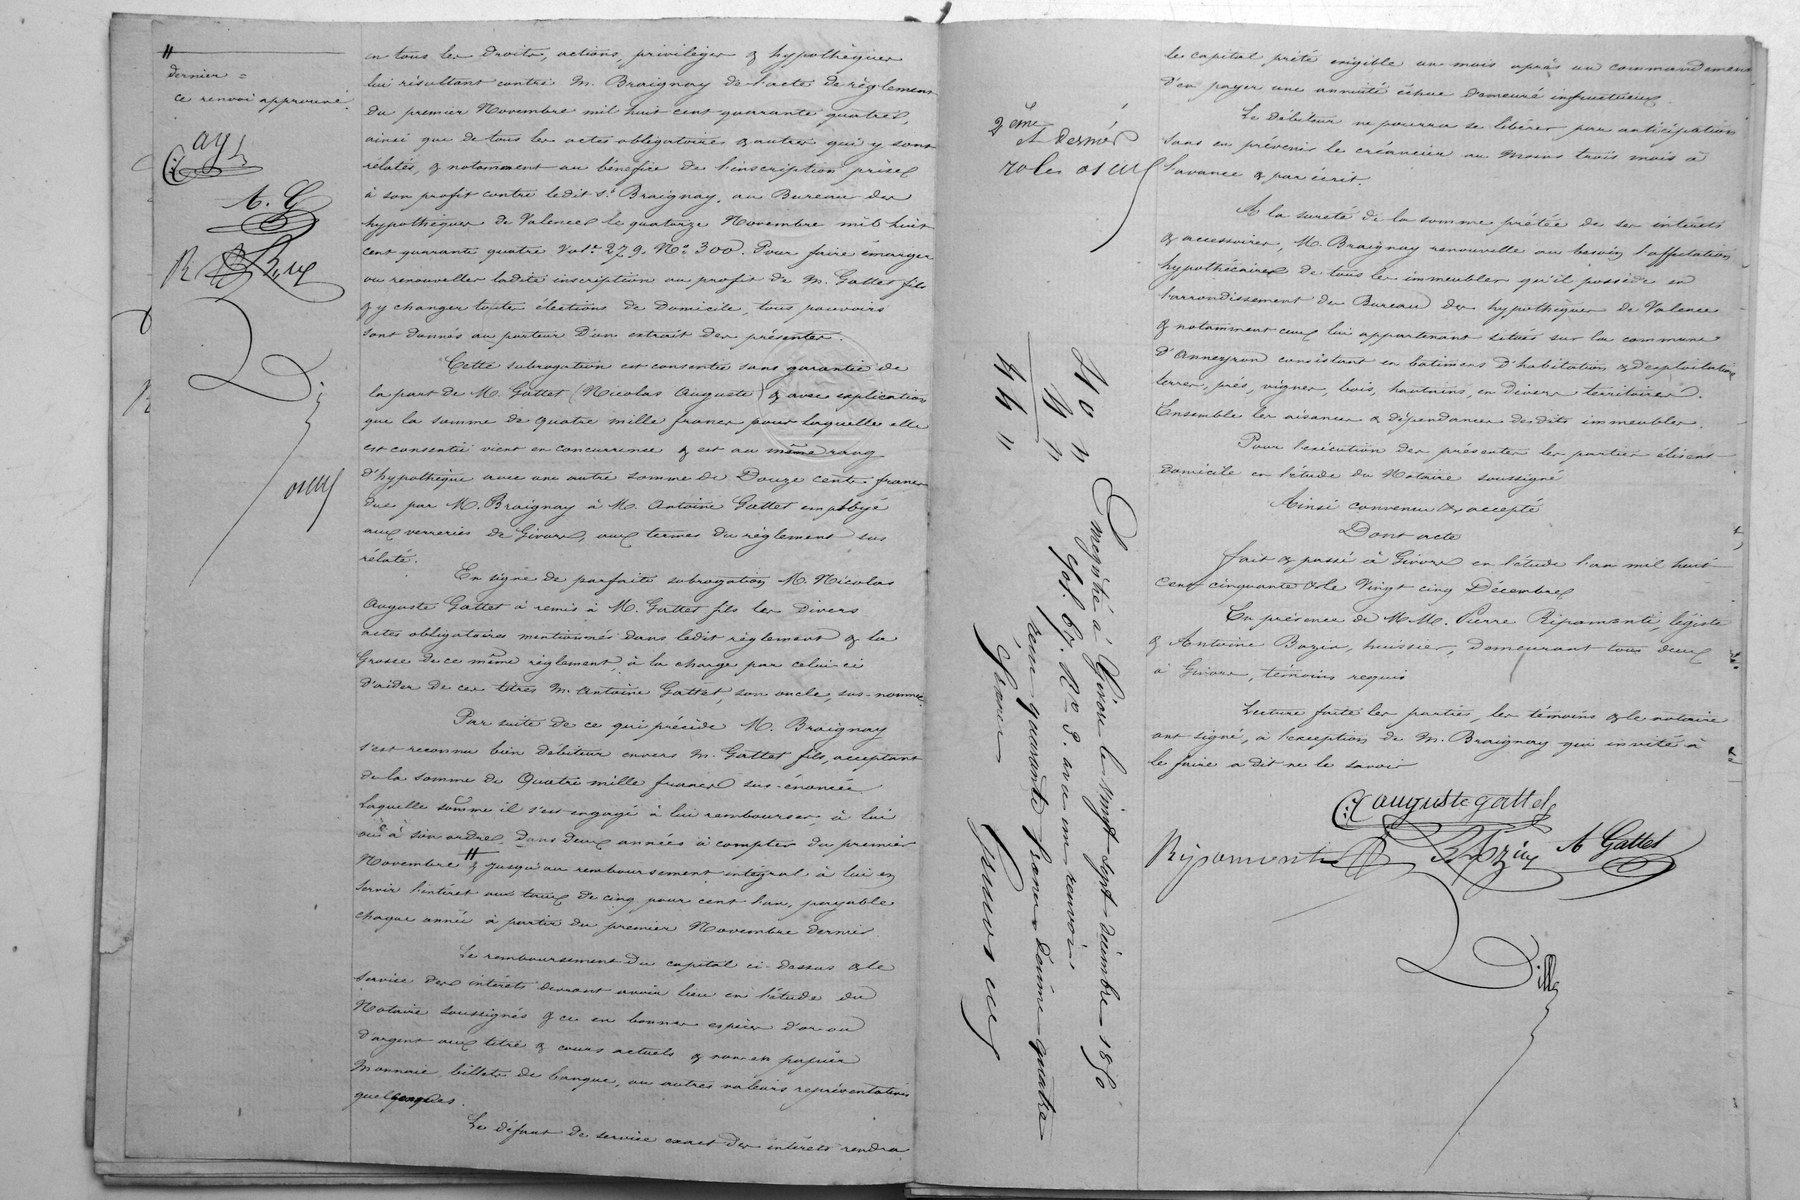 "
dernier =
ce renvoi approuvé.
ag
A. G
R
en tous les droits, actions, privilèges & hypothèques
lui résultant contre M. Braignay de l'acte de règlement
du premier Novembre mil huit cent quarante quatre,
ainsi que de tous les actes obligatoires & autres qui y sont
rélatés, & notamment au bénéfice de l'inscription prise
à son profit contre ledit Sr. Braignay, au Bureau des
hypothèques de Valence le quatorze Novembre mil huit
cent quarante quatre Vol.e 279. No. 300. Pour faire émarger
ou renouveller ladite inscription au profit de M. Gattet fils
& y changer toutes élections de domicile, tous pouvoirs
sont donnés au porteur d'un extrait des présentes.
Cette subrogation est consentie sans garantie de
la part de M. Gattet (Nicolas Auguste) & avec explication
que la somme de quatre mille francs pour laquelle elle
est consentie vient en concurrence & est au même rang
d'hypothèque avec une autre somme de Douze cents francs
due par M. Braignay à M. Antoine Gattet employé
aux verreries de Givors, aux termes du règlement sus
rélaté.
En signe de parfaite subrogation M. Nicolas
Auguste Gattet à remis à M. Gattet fils les divers
actes obligatoires mentionnés dans ledit règlement & la
Grosse de ce même règlement à la charge par celui-ci
d'aider de ces titres M. Antoine Gattet, son oncle, sus-nommé.
Par suite de ce qui précède M. Braignay
s'est reconnu bien débiteur envers M. Gattet fils, acceptant
de la somme de Quatre mille francs sus-énoncée
Laquelle somme il s'est engagé à lui rembourser, à lui
ou à son ordre, dans deux années à compter du premier
Novembre " & jusqu'au remboursement intégral à lui en
servir l'intérêt aux taux de cinq pour cent l'an, payable
chaque année à partir du premier Novembre dernier.
Le remboursement du capital ci-dessus & le
service des intérêts devront avoir lieu en l'étude du
Notaire soussignés & ce en bonnes espèces d'or ou
d'argent aux titre & cours actuels & non en papier
Monnaie, billets de banque, ou autres valeurs représentatives
quelconques.
Le défaut de service exact des intérêts rendra
2eme
et dernier
role
40 "
4 "
44 "
Enregistré à Givors le vingt-sept décembre 1850
fol. 67. Ro. 8. avec un renvoi
reçu quarante francs décime quatre
francs
le capital prêté exigible un mois après un commandement
d'en payer une annuité échue demeuré infructueux.
Le débiteur ne pourra se libérer par anticipation
sans en prévenir le créancier au moins trois mois à
l'avance & par écrit.
A la sureté de la somme prêtée de ses intérêts
& accessoires, M. Braignay renouvelle au besoin l'affectation
hypothécaire de tous les immeubles qu'il possède en
l'arrondissement du Bureau des hypothèques de Valence
& notamment ceux lui appartenant situés sur la commune
d'Anneyron consistant en batimens d'habitation & d'exploitation
terres, prés, vignes, bois, hautains, en divers territoires.
Ensemble les aisances & dépendances desdits immeubles.
Pour l'exécution des présentes les parties élisent
domicile en l'étude du Notaire soussigné
Ainsi convenu & accepté
Dont acte
fait & passé à Givors en l'étude l'an mil huit
cent cinquante & le Vingt cinq Décembre
En présence de M.M. Pierre Ripamonti, légiste
& Antoine Bozin, huissier, demeurant tous deux
à Givors, témoins requis
Lecture faite les parties, les témoins & le notaire
ont signé, à l'exception de M. Braignay qui invité à
le faire a dit ne le savoir
auguste gattet
Ripamonti
A Gattet